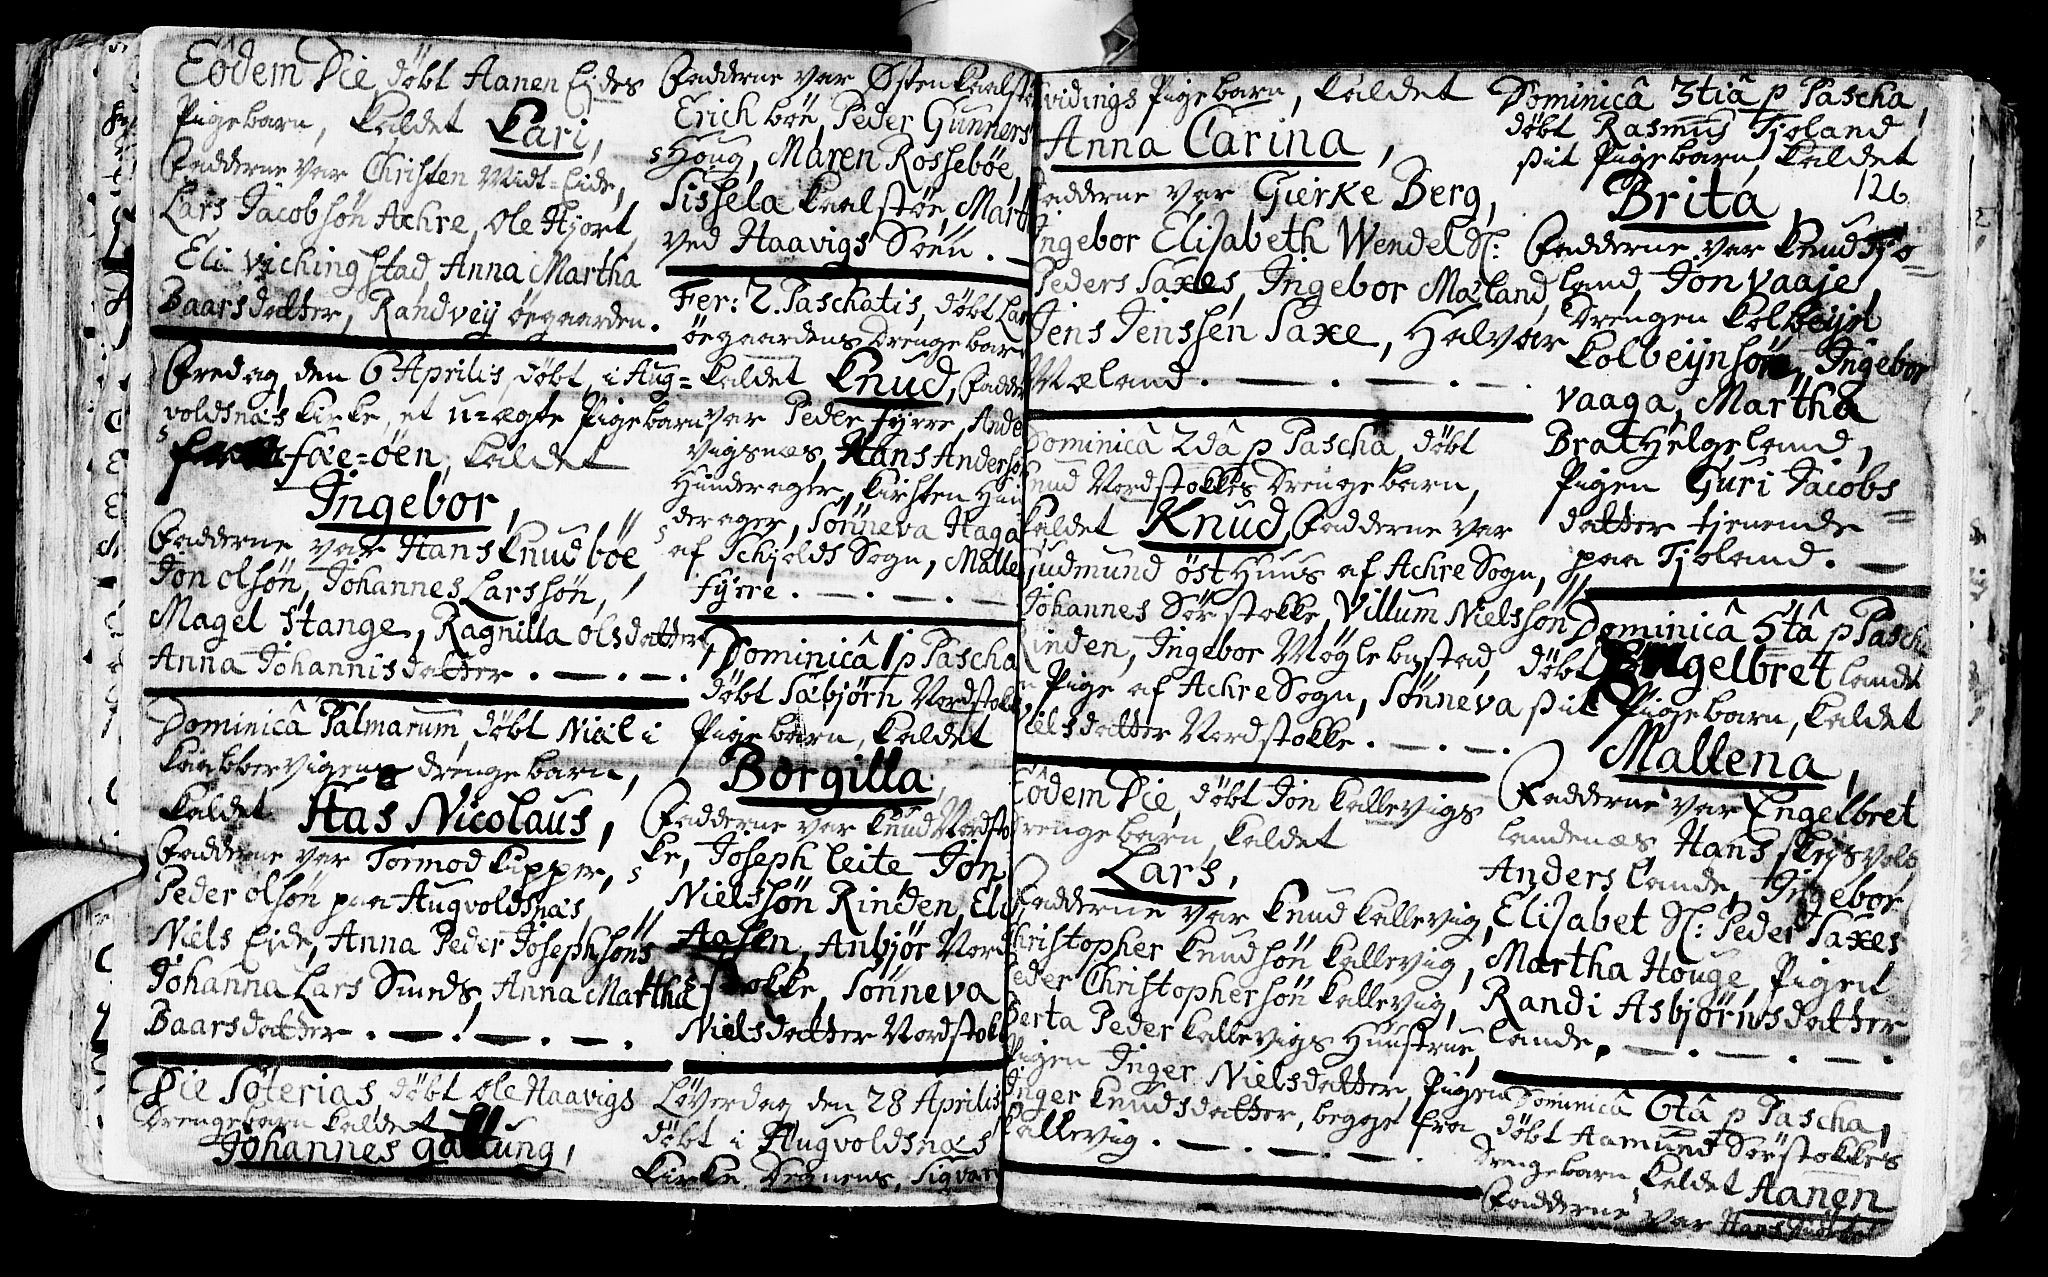 Eodem Die, döbt Aanen Eides
Pigebarn, kaldet Kari,
Fadderne var Christen Midt-Eide,
Lars Jacobsön Achre, Ole Hjort,
Eli Vichingstad, Anna Martha
Baarsdatter, Randveij öegaarden.
Fredag, den 6 Aprilis, döbt, i Aug=
voldsnæs Kirke, et uægte Pigebarn
fra fæe=öen, kaldet
Ingebor,
Fadderne var Hans Knudböe,
Jon olsön, Johannes Larssön,
Magel Stange, Ragnilla olsdatter,
Anna Johannisdatter.
Dominicâ Palmarum, döbt Niel i
drengebarn,
kaldet Has Nicolaus,
Fadderne var Tormod Kipper,
Peder olsön paa Augvoldsnæs,
Niels Eide, Anna Peder Josephsöns
Johanna Lars Smeds, Anna Martha
Baarsdatter.
Die Soterias, döbt ole Haavigs
Drengebarn kaldet
Johannes Galtung,
Fadderne var Østen Kaalstö
Erich böe, Peder Gunners
Houg, Maren Rossebøe,
Sissela Kaalstöe, Marth
ved Haavigs Söen.
Fer: 2. Paschatis, döbt Lar
öegaardens Drengebar
kaldet Knud, Fadder
var Peder fyrre, Ande
Vigsnæs, Hans Anderso
Hunderager, Kirsten Hun
derager, Sönneva Haga
af Schjolds Sogn, Malle
fyrre.
Dominicâ 1 p Pascha
döbt Sæbjørn Nordstokk
Pigebarn, kaldet
Borgilla,
Fadderne var Knud Nordsto
ke, Joseph Leite Jon
Nielssön Rinden, Eli
Aasen, Anbjør Nord
stokke, Sönneva
Nielsdatter Nordstokk
Löverdag den 28 Aprilis
döbt i Augvoldsnæs
Kirke, Degnens, Sigvar
vidings Pigebarn, kaldet
Anna Carina,
Fadderne var Gierke Berg,
Ingebor Elisabeth Wendel Sl:
Peders Saxes, Ingebor Mæland,
Jens Jenssen Saxe, Halvar
Mæland.
Dominicâ 2dâ p Pascha, döbt
Knud Nordstokkes Drengebarn,
kaldet Knud, Fadderne var
Gudmund östhuus af Achre Sogn,
Johannes Sörstokke, Villum Nielssön
Rinden, Ingebor Möglebustad,
en Pige af Achre Sogn, Sönneva
Nielsdatter Nordstokke.
Eodem Die, döbt Jon Kallevigs
Drengebarn, kaldet
Lars,
Fadderne var Knud Kallevig,
Christopher Knudsön Kallevig,
Peder Christophersön Kallevig,
Berta Peder Kallevigs Hustrue,
Pigen Inger Nielsdatter, Pigen
Inger Knudsdatter, begge fra
Kallevig.
Dominicâ 3tiâ p Pascha,
döbt Rasmus Tjoland
sit Pigebarn, kaldet
126
Brita,
Fadderne var Knud Tjo=
land, Jon Vaaje,
Drengen Kolbejn
Kolbeijnsön, Ingebor
Vaaga, Martha
Brat Helgeland,
Pigen Guri Jacobs=
datter tjenende
paa Tjoland.
Dominicâ 5tâ p Pascha
döbt Engelbret Lande
sit Pigebarn, kaldet
Mallena,
Fadderne var Engelbret
Landenæs, Hans
Anders Lande, Ingebor
Elisabet Sl: Peder Saxes
Martha Houge, Pigen
Randi Asbjørnsdatter
Lande.
Dominicâ 6tâ p Pascha,
döbt Aamund Sörstokkes
Drengebarn kaldet Aanen
Fadderne var Hans